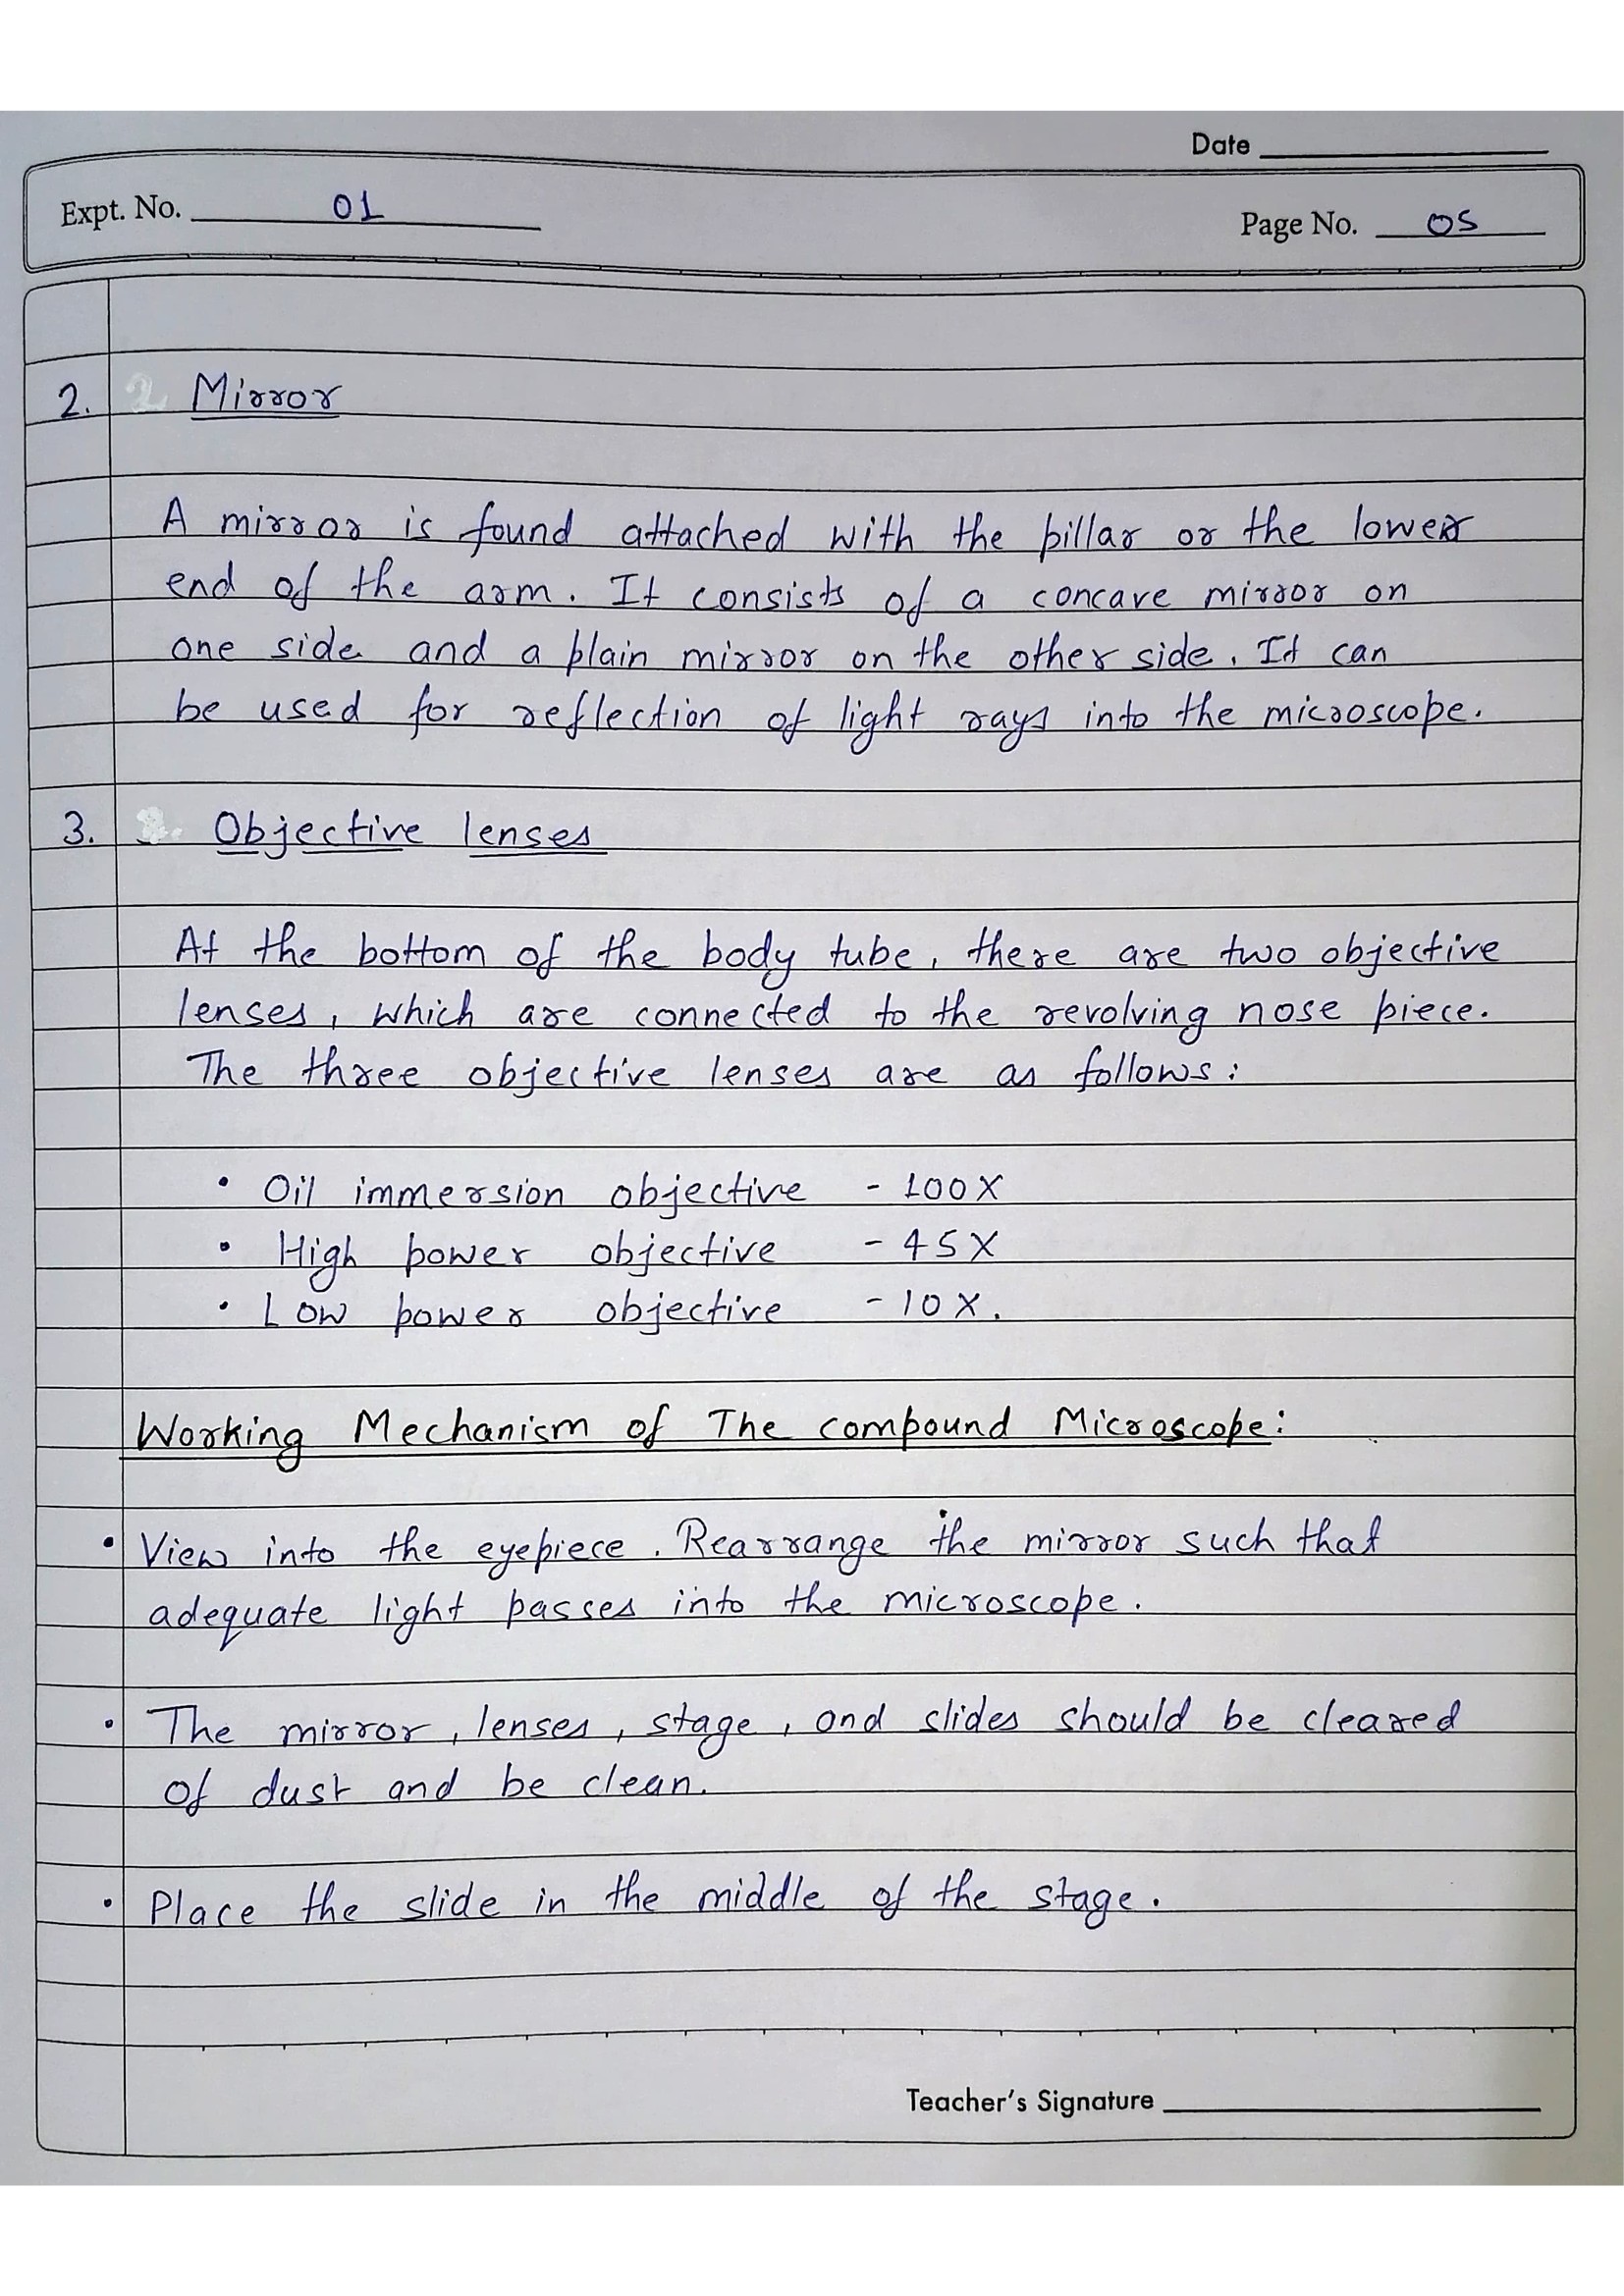 Date
Expt. No. 01
Page No. 05
2. Mirror
A mirror is found attached with the pillar or the lower
end of the arm. It consists of a concave mirror on
one side and a plain mirror on the other side. It can
be used for reflection of light rays into the microscope.
3. Objective lenses
At the bottom of the body tube, there are two objective
lenses, which are connected to the revolving nose piece.
The three objective lenses are as follows:
• Oil immersion objective - 100X
• High power objective - 45X
• Low power objective - 10X.
Working Mechanism of The compound Microscope:
• View into the eyepiece. Rearrange the mirror such that
adequate light passes into the microscope.
• The mirror, lenses, stage, and slides should be cleared
of dust and be clean.
• Place the slide in the middle of the stage.
Teacher's Signature